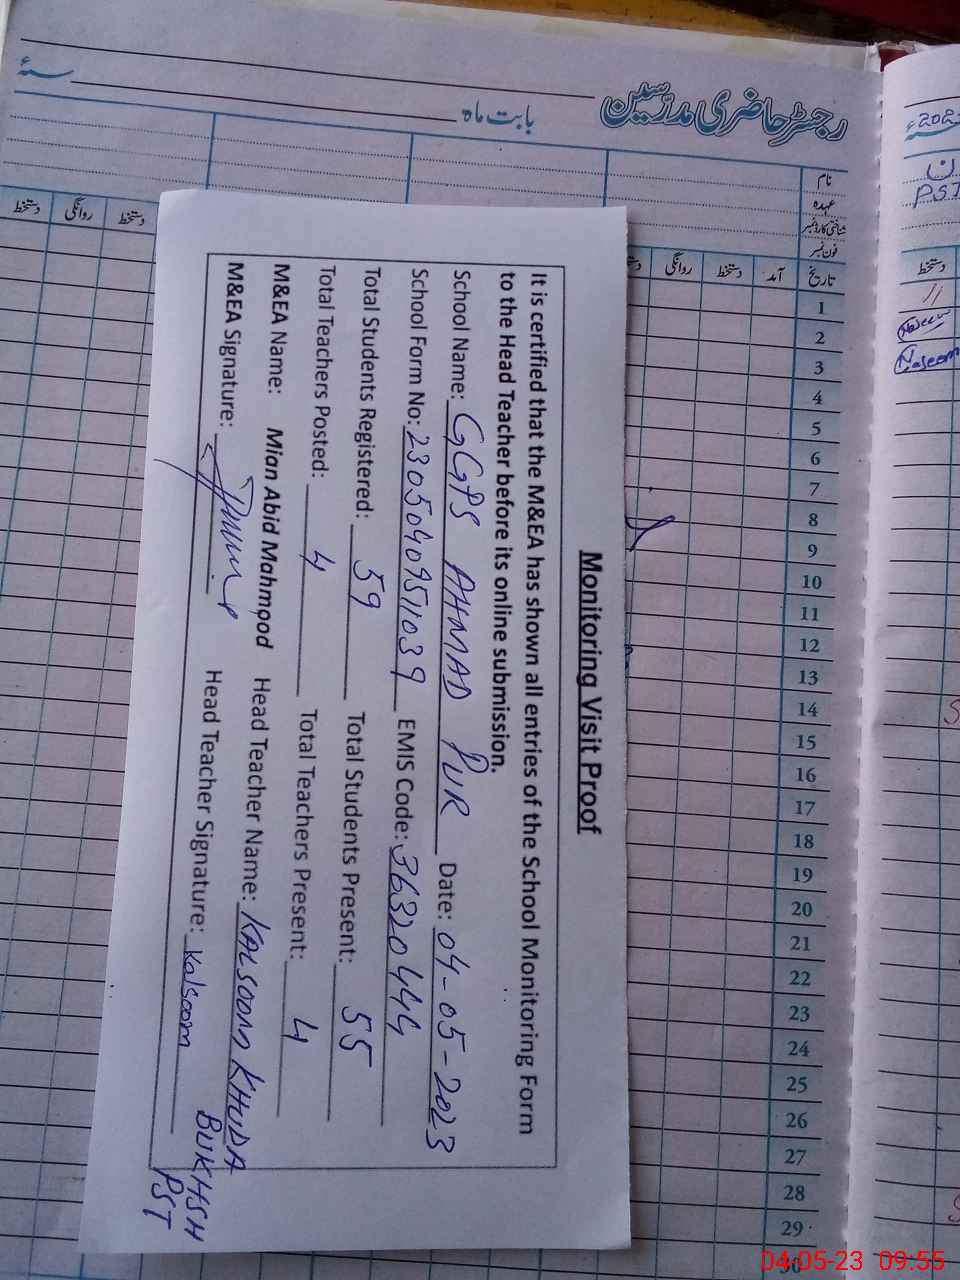 رجسٹر حاضری مدرسین
بابت ماہ
سنہء
نام
عہدہ
شناختی کارڈ نمبر
فون نمبر
تاریخ آمد دستخط روانگی دستخط
دستخط روانگی دستخط
1
2
3
4
5
6
7
8
9
10
11
12
13
14
15
16
17
18
19
20
21
22
23
24
25
26
27
28
29
30
Monitoring Visit Proof
It is certified that the M&EA has shown all entries of the School Monitoring Form
to the Head Teacher before its online submission.
School Name: GGPS AHMAD PUR Date: 04-05-2023
School Form No: 2305040951039 EMIS Code: 36320444
Total Students Registered: 59 Total Students Present: 55
Total Teachers Posted: 4 Total Teachers Present: 4
M&EA Name: Mian Abid Mahmood Head Teacher Name: KALSOOM KHUDA
BUKHSH
M&EA Signature: Head Teacher Signature: Kalsoom
PST
PST
دستخط
Naseem
Naseem
04-05-23 09:55